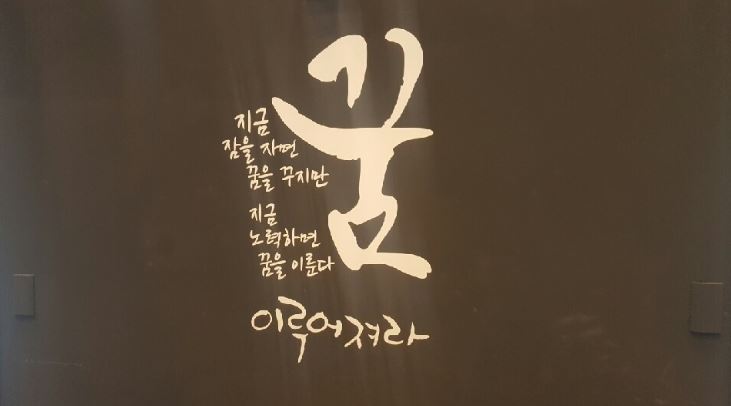 꿈
지금
잠을 자면
꿈을 꾸지만
지금
노력하면
꿈을 이룬다
이루어져라